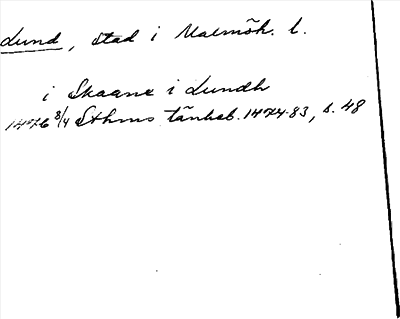 Lund, stad i Malmöh. l.
i Skaane i Lundh
1476 8/4 Sthms tänkeb. 1474-83, s. 48